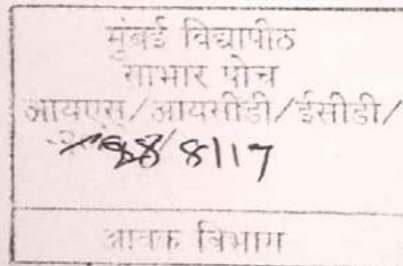 मुंबई विद्यापीठ
साभार पोच
आयएस/आयसीडी/ईसीडी/
8/17
आवक विभाग